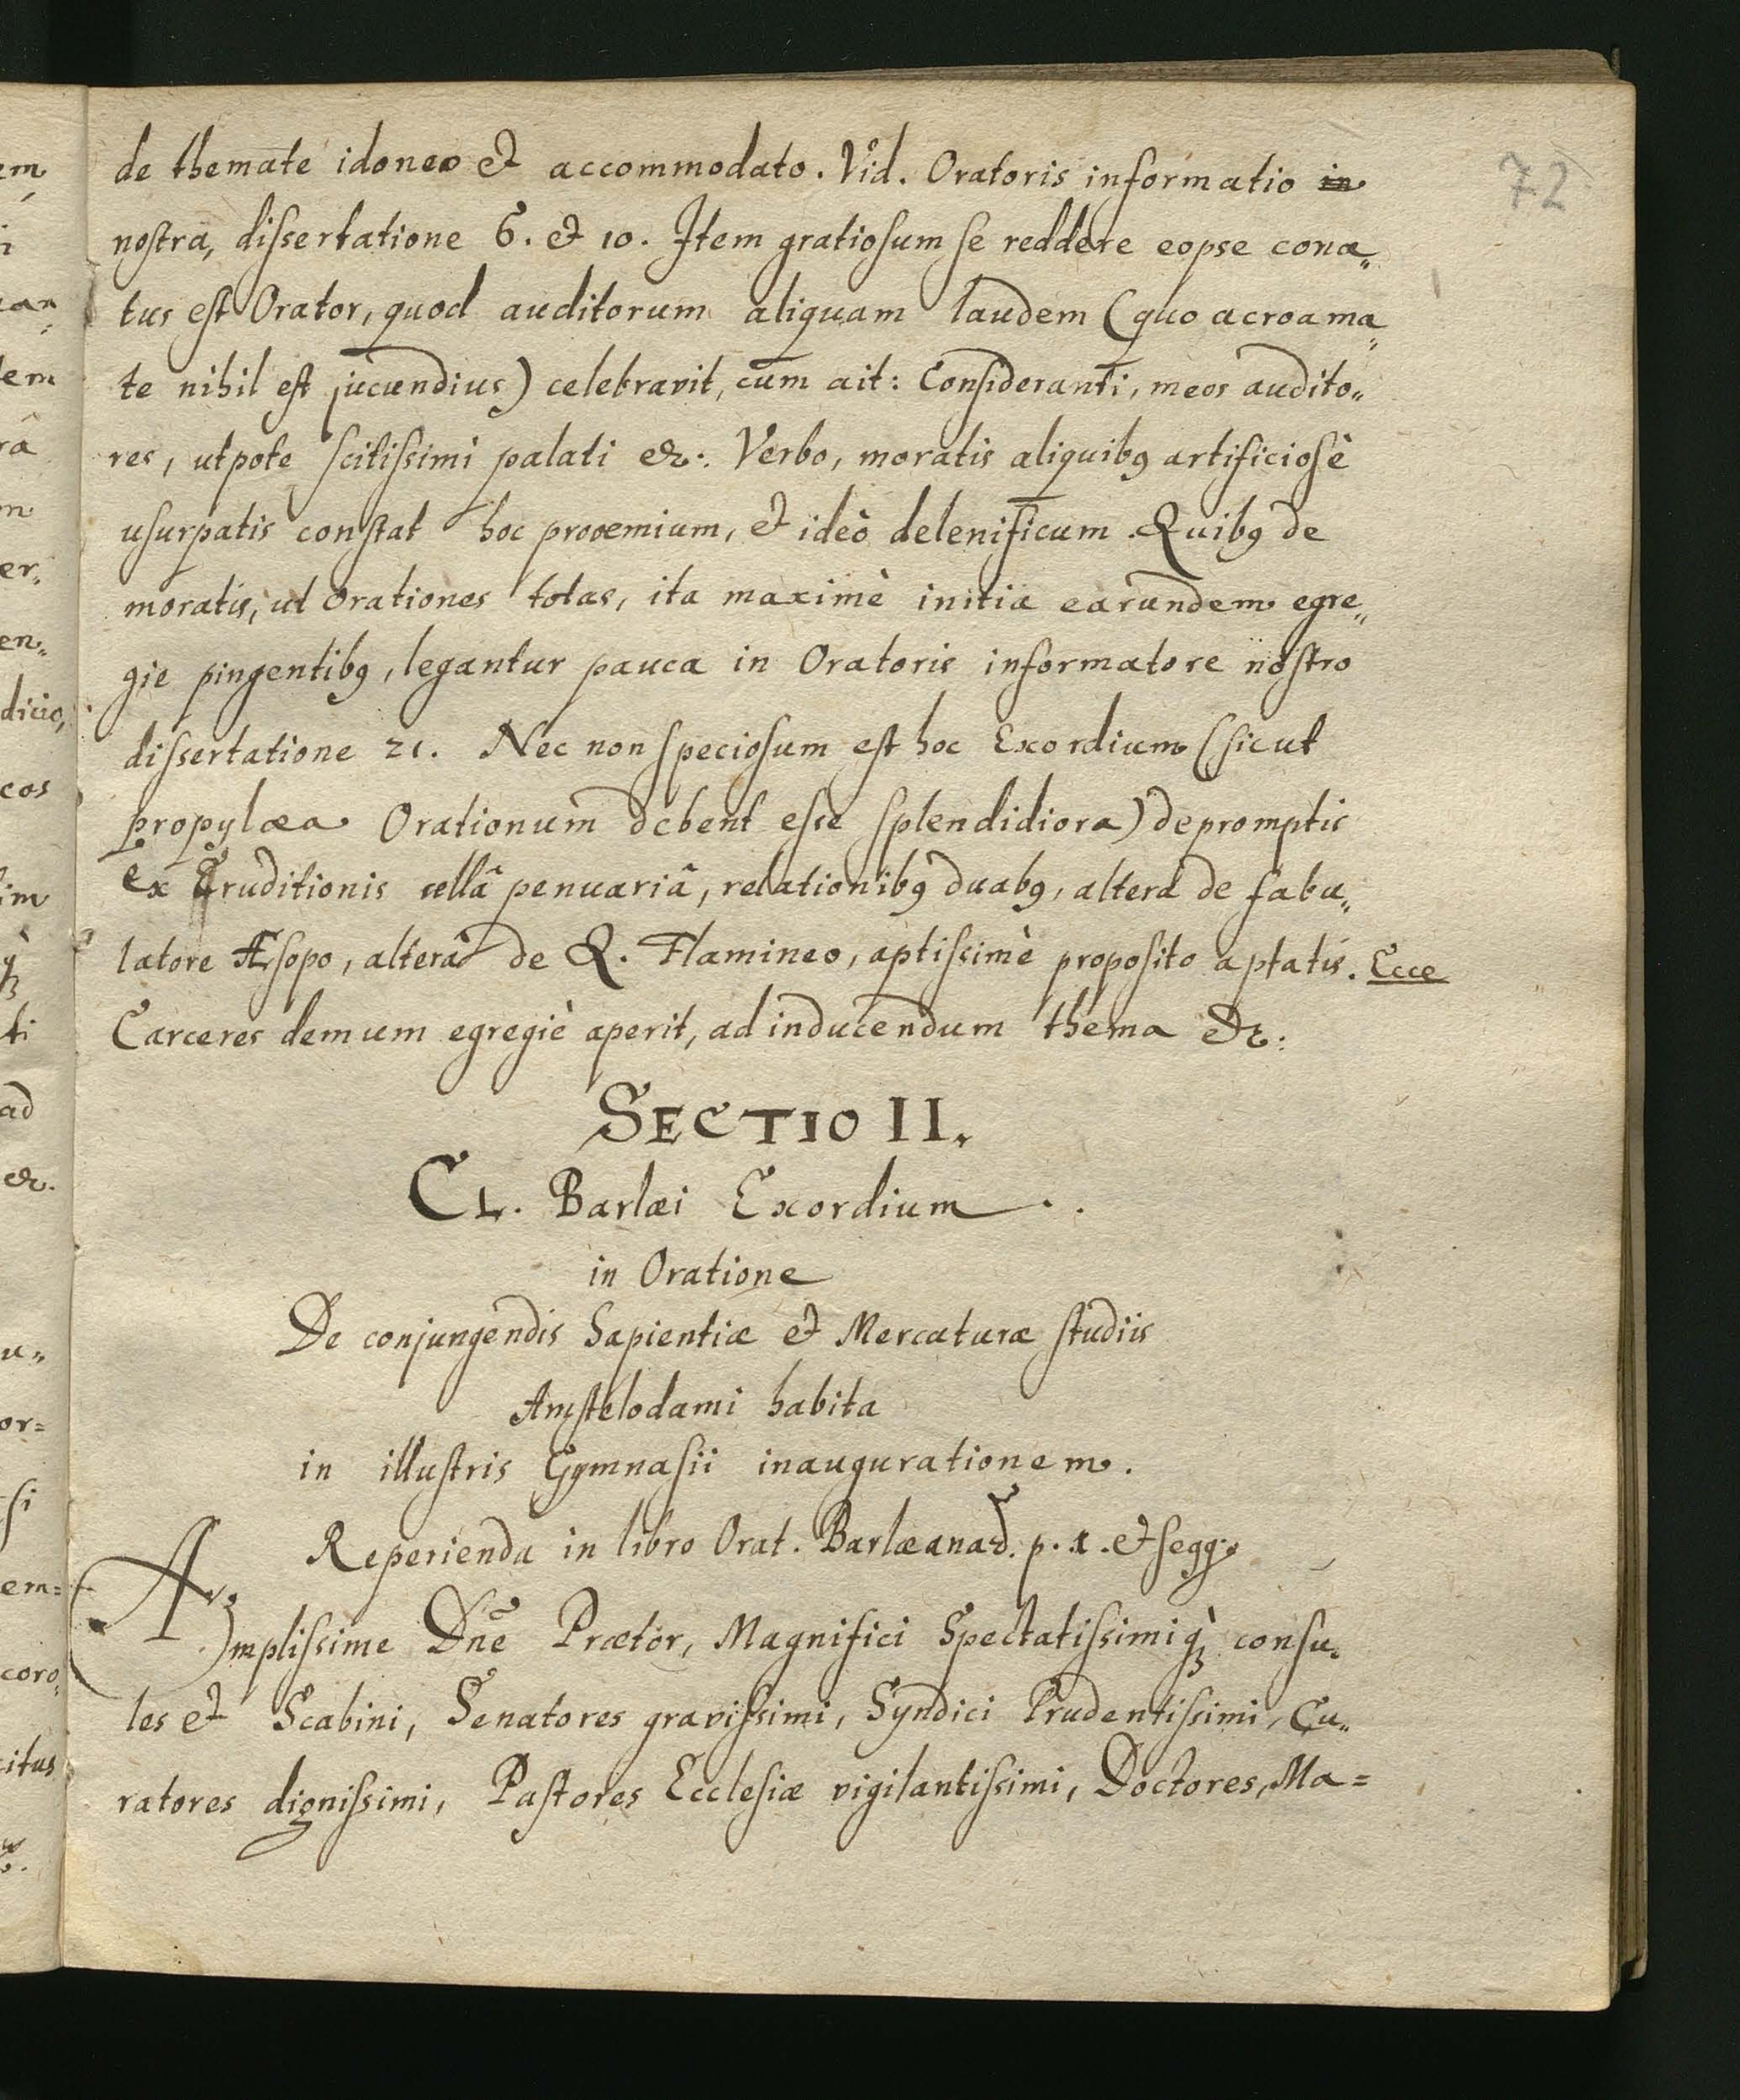 72
de themate idoneo et accommodato. Vid. Oratoris informatio in
nostra, dissertatione 6. et 10. Item gratiosum se reddere eopse cona„
tus est Orator, quod auditorum aliquam laudem (quo acroama„
te nihil est jucundius) celebravit, cum ait: Consideranti, meos audito„
res, utpote scitissimi palati &c. Verbo, moratis aliquibꝰ artificiosè
usurpatis constat hoc prooemium, et ideò delenificum. Quibꝰ de
moratis, ut Orationes totas, ita maximè initia earundem egre„
gie pingentibꝰ, legantur pauca in Oratoris informatore nostro
dissertatione 21. Nec non speciosum est hoc Exordium (sicut
propylæa Orationum debent esse splendidiora) depromptis
ex Eruditionis cellâ penuariâ, relationibꝰ duabꝰ, alterâ de fabu„
latore Æsopo, alterâ de Q. Flamineo, aptissimè proposito aptatis. Ecce
Carceres demum egregiè aperit, ad inducendum thema &c:
SECTIO II.
CL. Barlæi Exordium
in Oratione
De conjungendis Sapientiæ et Mercaturæ studiis
Amstelodami habita
in illustris Gymnasii inaugurationem.
Reperienda in libro Orat. Barlæanar. p. 1. et seqq.
Amplissime Dnē Prætor, Magnifici Spectatissimiq̀ꝫ consu„
les et Scabini, Senatores gravissimi, Syndici Prudentissimi, Cu„
ratores dignissimi, Pastores Ecclesiæ vigilantissimi, Doctores, Ma=